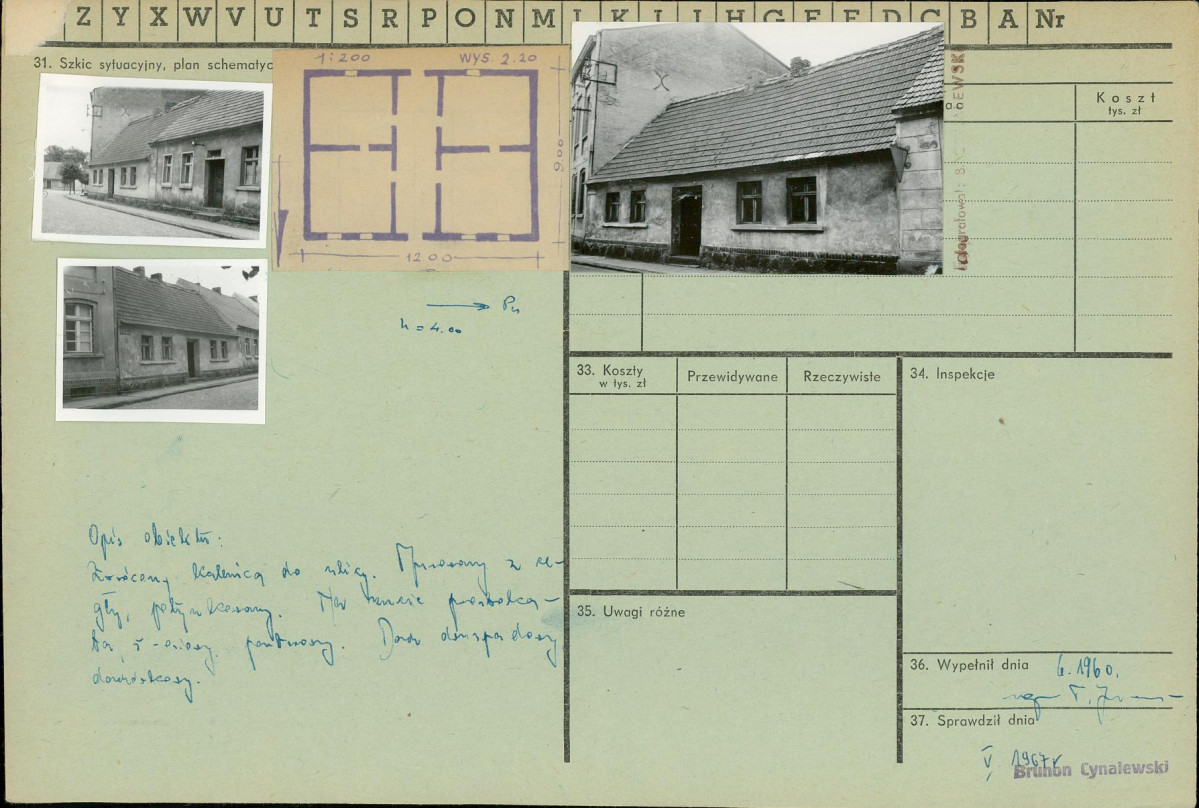 Z Y X W V U T S R P O N M L K I J H G F E D C B A Nr
31. Szkic sytuacyjny, plan schematyc
1:200 WYS. 2.20
900
1200
h = 4.00
Koszt
tys. zł
33. Koszty
w tys. zł
Przewidywane
Rzeczywiste
34. Inspekcje
Opis obiektu:
Zwrócony kalenicą do ulicy. Murowany z ce-
gły, potynkowany. Na rzucie prostoką-
ta, 5-osiowy, parterowy. Dach dwuspadowy,
dachówkowy.
35. Uwagi różne
36. Wypełnił dnia 6.1960.
mgr
37. Sprawdził dnia
V 1967r
Brunon Cynalewski